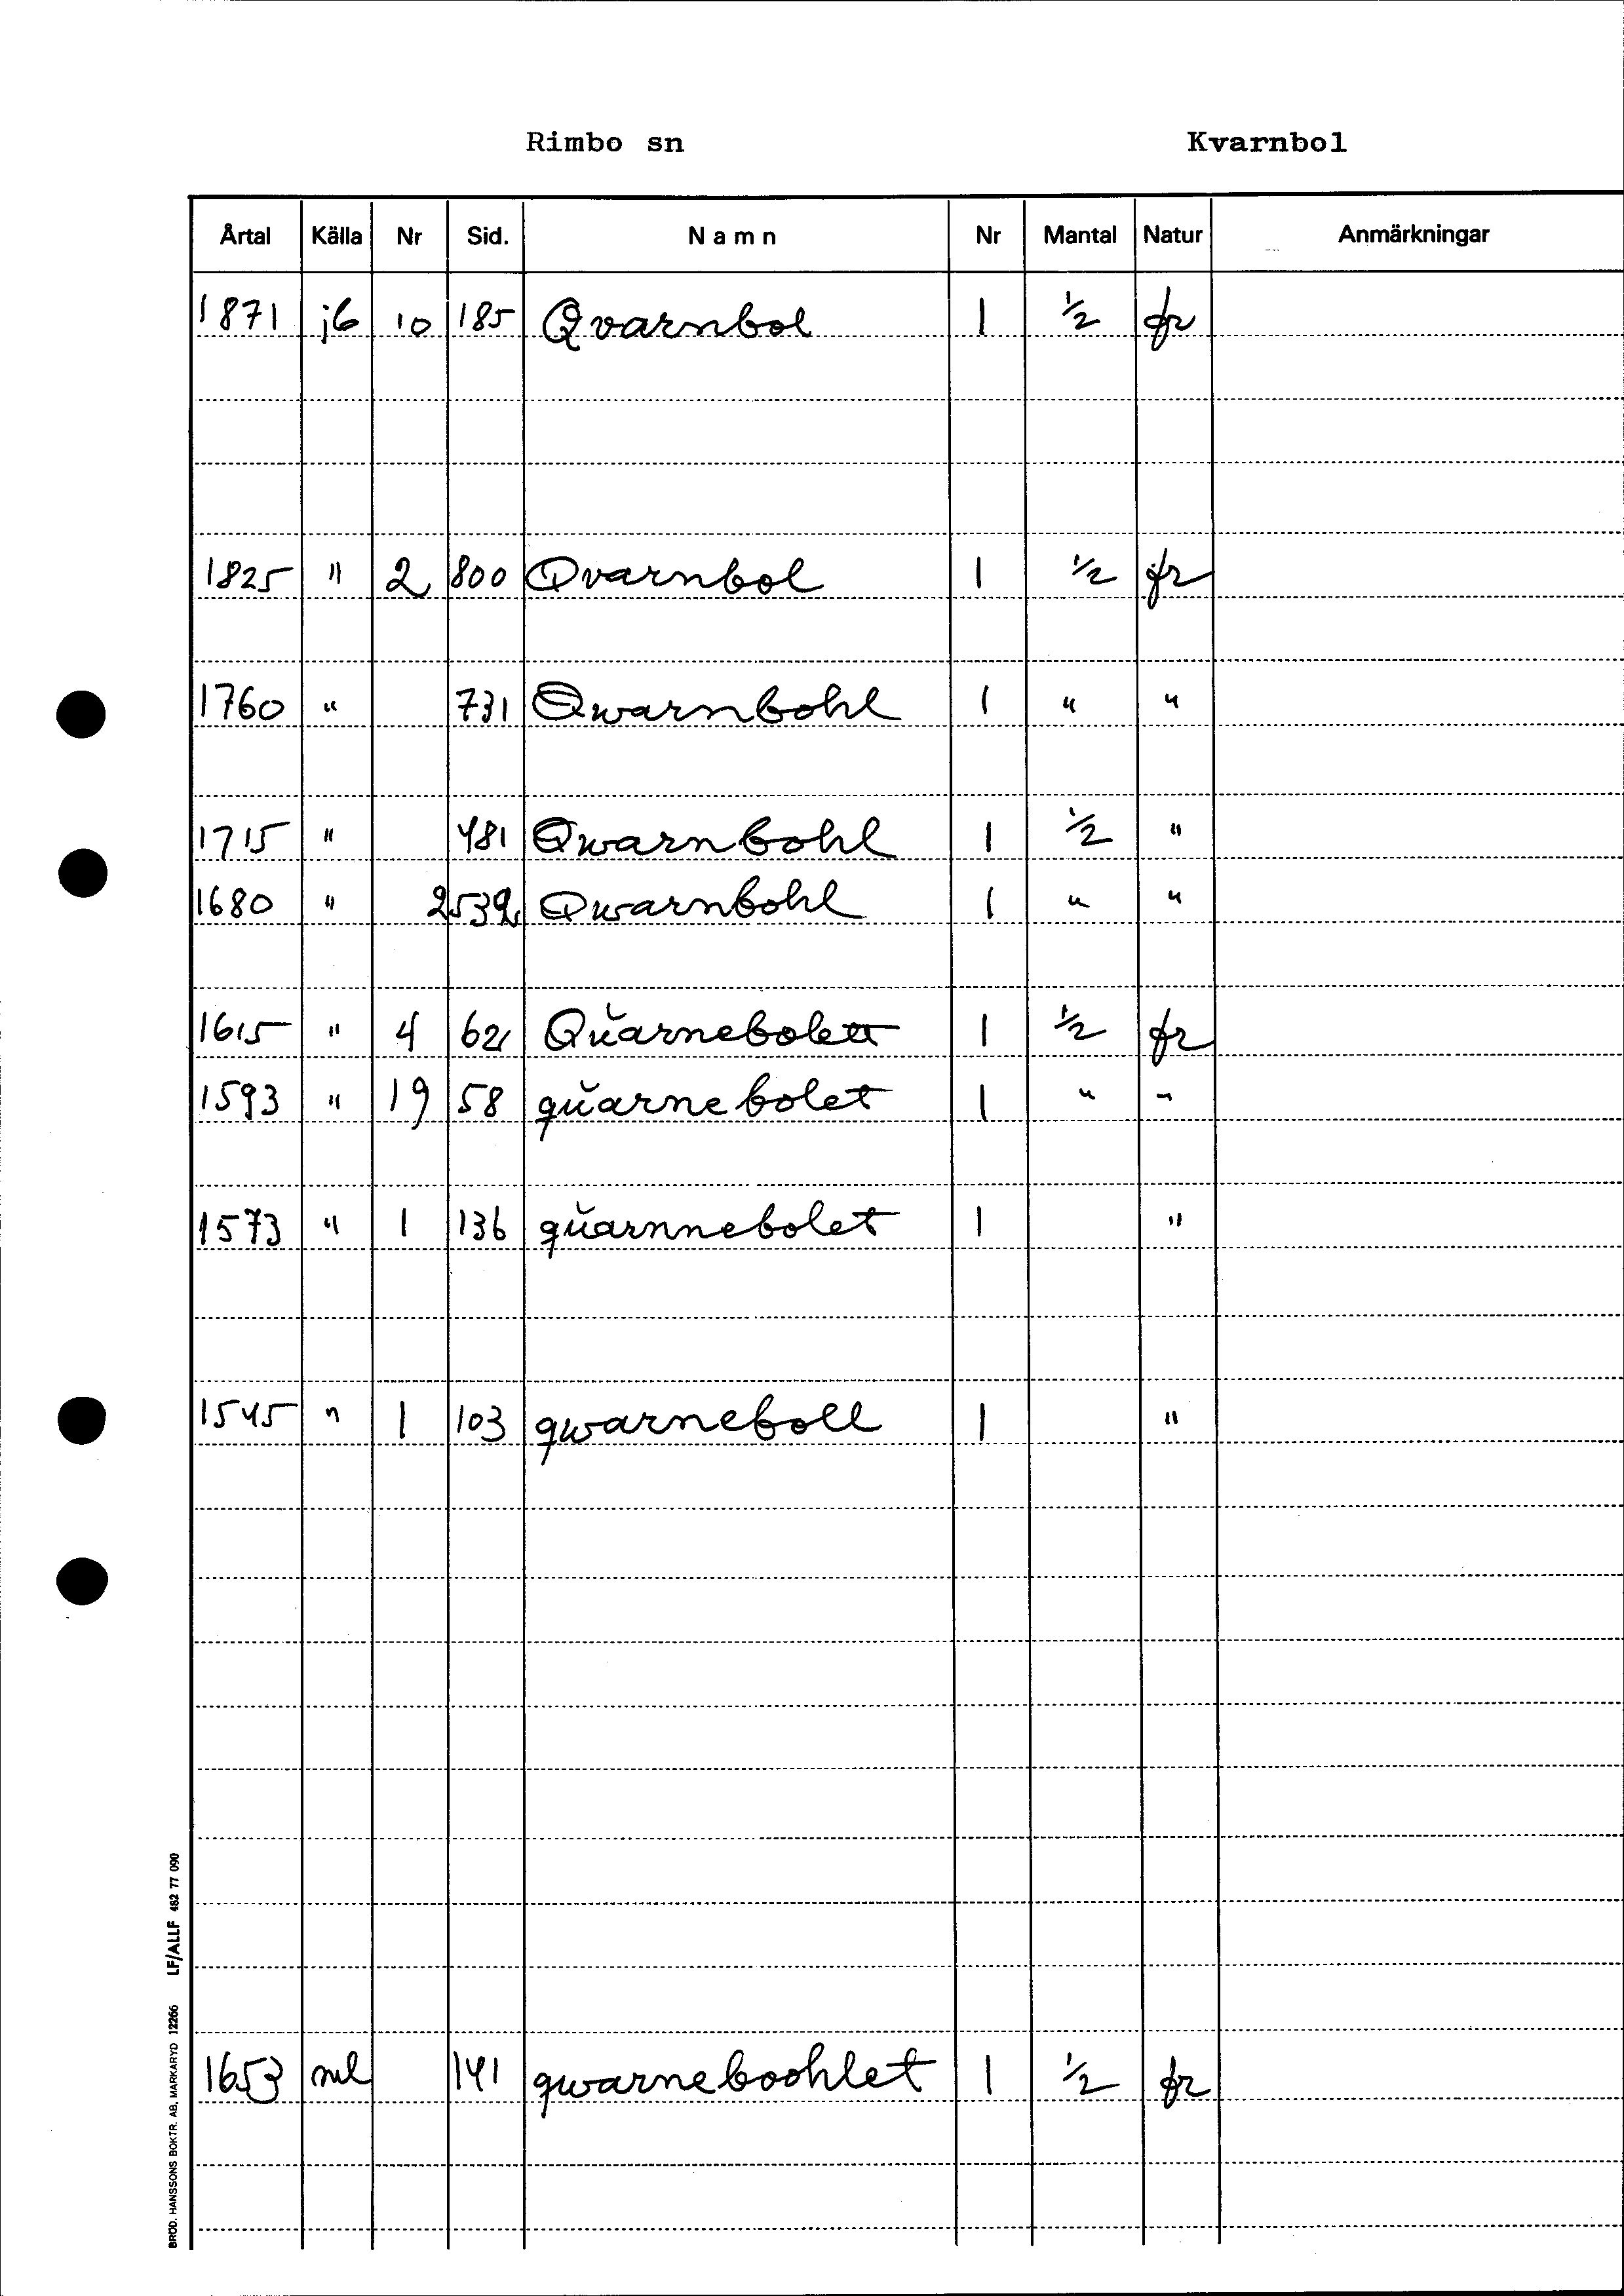 Rimbo sn Kvarnbol
Årtal Källa Nr Sid. Namn Nr Mantal Natur Anmärkningar
1871 jb 10 185 Qvarnbol 1 1/2 fr
1825 " 2 800 Qvarnbol 1 1/2 fr
1760 " 731 Qwarnbohl 1 " "
1715 " 481 Qwarnbohl 1 1/2 "
1680 " 2532 Qwarnbohl 1 " "
1615 " 4 62 Qŭarnebolett 1 1/2 fr
1593 " 19 58 qŭarnebolet 1 " "
1573 " 1 136 qŭarnnebolet 1 "
1545 " 1 103 qwarneboll 1 "
1653 ml 141 qwarneboohlet 1 1/2 fr
BRÖD. HANSSONS BOKTR. AB, MARKARYD 12266 LF/ALLF 482 77 090